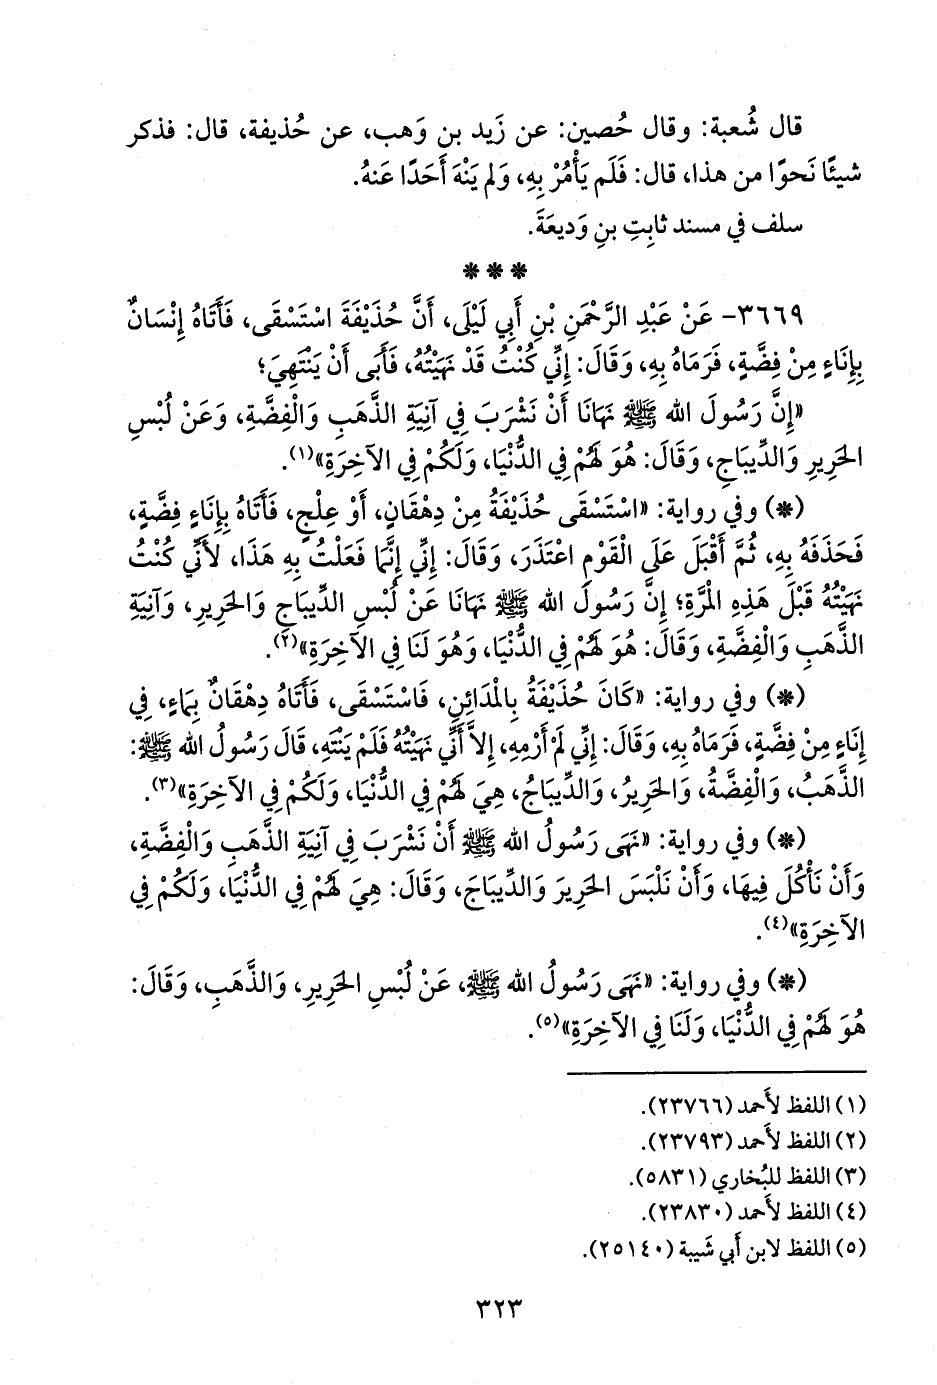 قال شُعبة: وقال حُصين: عن زَيد بن وَهب، عن حُذيفة، قال: فذكر
شيئًا نَحوًا من هذا، قال: فَلَم يَأْمُرْ بِهِ، وَلم يَنْهَ أَحَدًا عَنهُ.
سلف في مسند ثابِتِ بنِ وَديعَةَ.
❋ ❋ ❋
٣٦٦٩- عَنْ عَبْدِ الرَّحْمَنِ بْنِ أَبِي لَيْلَى، أَنَّ حُذَيْفَةَ اسْتَسْقَى، فَأَتَاهُ إِنْسَانٌ
بِإِنَاءٍ مِنْ فِضَّةٍ، فَرَمَاهُ بِهِ، وَقَالَ: إِنِّي كُنْتُ قَدْ نَهَيْتُهُ، فَأَبَى أَنْ يَنْتَهِيَ؛
«إِنَّ رَسُولَ الله ﷺ نَهَانَا أَنْ نَشْرَبَ فِي آنِيَةِ الذَّهَبِ وَالْفِضَّةِ، وَعَنْ لُبْسِ
الحَرِيرِ وَالدِّيبَاجِ، وَقَالَ: هُوَ لَهُمْ فِي الدُّنْيَا، وَلَكُمْ فِي الآخِرَةِ»(١).
(❋) وفي رواية: «اسْتَسْقَى حُذَيْفَةُ مِنْ دِهْقَانٍ، أَوْ عِلْجٍ، فَأَتَاهُ بِإِنَاءٍ فِضَّةٍ،
فَحَذَفَهُ بِهِ، ثُمَّ أَقْبَلَ عَلَى الْقَوْمِ اعْتَذَرَ، وَقَالَ: إِنِّي إِنَّمَا فَعَلْتُ بِهِ هَذَا، لأَنِّي كُنْتُ
نَهَيْتُهُ قَبْلَ هَذِهِ المَرَّةِ؛ إِنَّ رَسُولَ الله ﷺ نَهَانَا عَنْ لُبْسِ الدِّيبَاجِ وَالحَرِيرِ، وَآنِيَةِ
الذَّهَبِ وَالْفِضَّةِ، وَقَالَ: هُوَ لَهُمْ فِي الدُّنْيَا، وَهُوَ لَنَا فِي الآخِرَةِ»(٢).
(❋) وفي رواية: «كَانَ حُذَيْفَةُ بِالْمَدَائِنِ، فَاسْتَسْقَى، فَأَتَاهُ دِهْقَانٌ بِمَاءٍ، فِي
إِنَاءٍ مِنْ فِضَّةٍ، فَرَمَاهُ بِهِ، وَقَالَ: إِنِّي لَمْ أَرْمِهِ، إِلاَّ أَنِّي نَهَيْتُهُ فَلَمْ يَنْتَهِ، قَالَ رَسُولُ الله ﷺ:
الذَّهَبُ، وَالْفِضَّةُ، وَالحَرِيرُ، وَالدِّيبَاجُ، هِيَ لَهُمْ فِي الدُّنْيَا، وَلَكُمْ فِي الآخِرَةِ»(٣).
(❋) وفي رواية: «نَهَى رَسُولُ الله ﷺ أَنْ نَشْرَبَ فِي آنِيَةِ الذَّهَبِ وَالْفِضَّةِ،
وَأَنْ نَأْكُلَ فِيهَا، وَأَنْ نَلْبَسَ الحَرِيرَ وَالدِّيبَاجَ، وَقَالَ: هِيَ لَهُمْ فِي الدُّنْيَا، وَلَكُمْ فِي
الآخِرَةِ»(٤).
(❋) وفي رواية: «نَهَى رَسُولُ الله ﷺ، عَنْ لُبْسِ الحَرِيرِ، وَالذَّهَبِ، وَقَالَ:
هُوَ لَهُمْ فِي الدُّنْيَا، وَلَنَا فِي الآخِرَةِ»(٥).
(١) اللفظ لأَحمد (٢٣٧٦٦).
(٢) اللفظ لأَحمد (٢٣٧٩٣).
(٣) اللفظ للبُخاري (٥٨٣١).
(٤) اللفظ لأَحمد (٢٣٨٣٠).
(٥) اللفظ لابن أَبي شَيبة (٢٥١٤٠).
٣٢٣